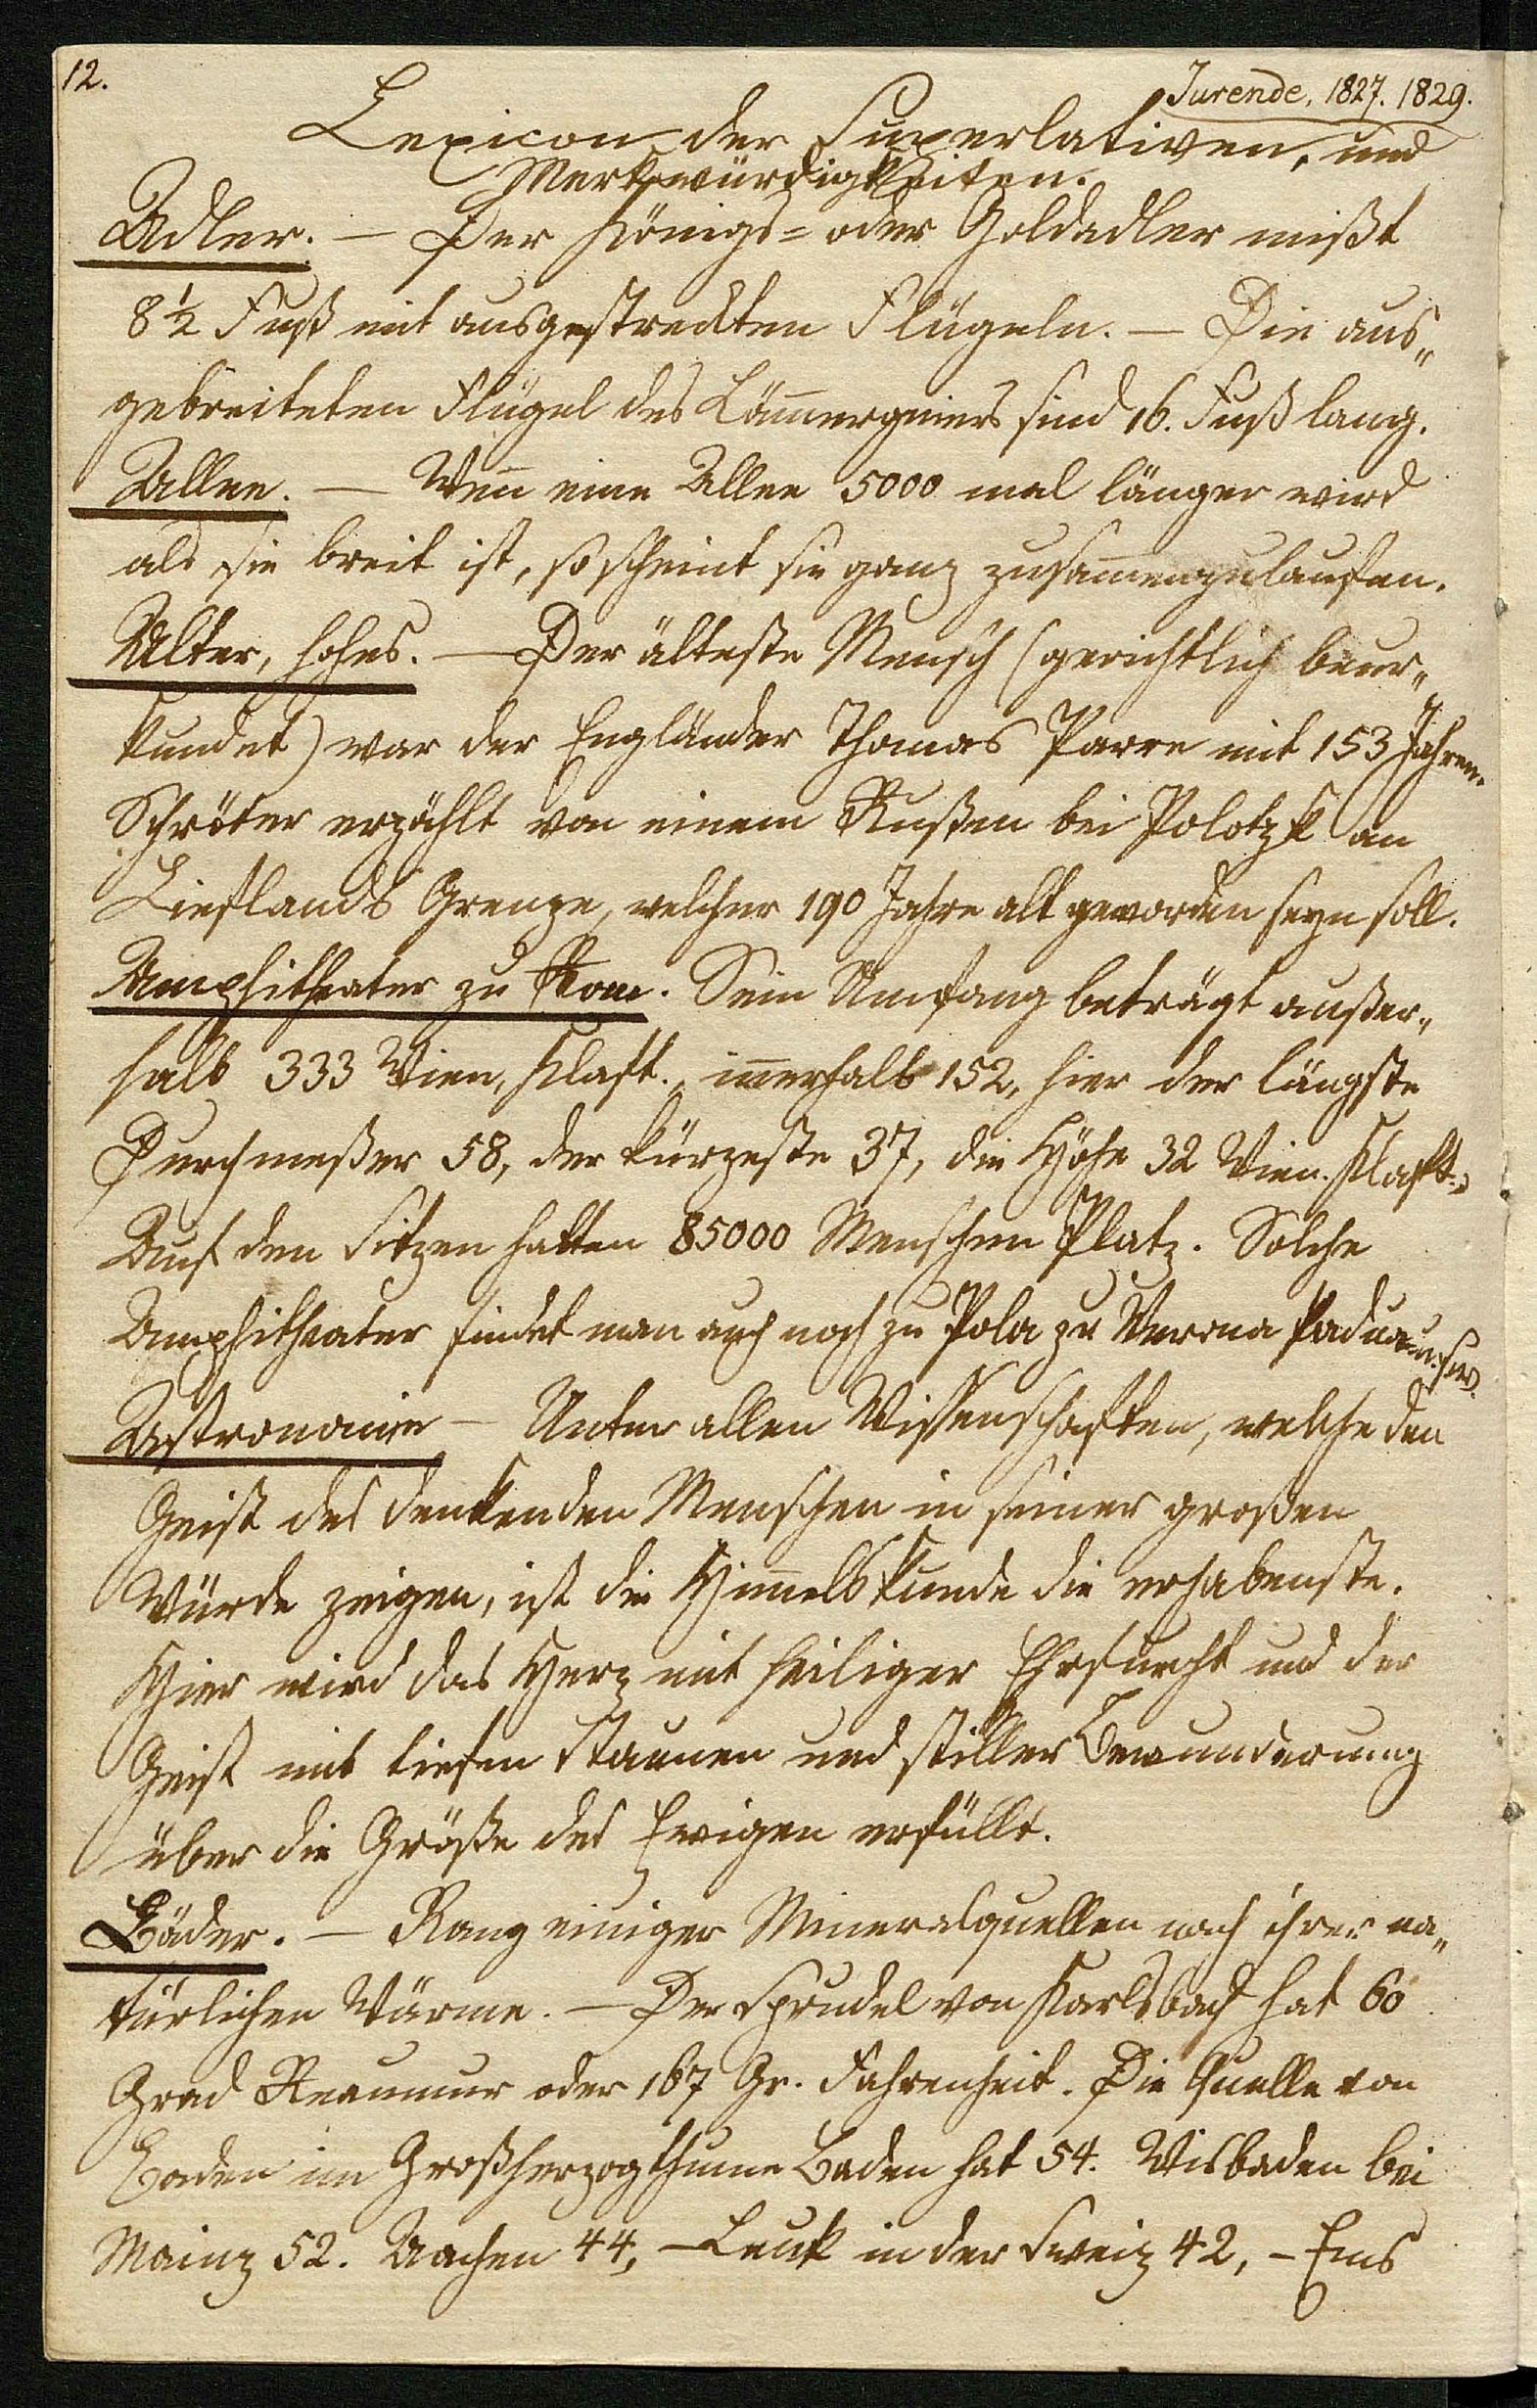 12.
Jurende, 1827. 1829.
Lexicon der Superlativen, und
Merkwürdigkeiten.
Adler. — Der Königs= oder Goldadler mißt
8½ Fuß mit ausgestreckten Flügeln. — Die aus„
gebreiteten Flügel des Läm̄ergeiers sind 16. Fuß lang.
Allee. — Wen̄ eine Allee 5000 mal länger wird
als sie breit ist, so scheint sie ganz zusam̄enzulaufen.
Alter, hohes. — Der älteste Mensch (gerichtlich beur„
kundet) war der Engländer Thomas Parre mit 153 Jahren.
Schröter erzählt von einem Rußen bei Polotzk an
Lieflands Grenze, welcher 190 Jahre alt geworden seyn soll.
Amphitheater zu Rom. Sein Umfang beträgt außer„
halb 333 Wien. Klaft., in̄erhalb 152, hier der längste
Durchmeßer 58, der kürzeste 37, die Höhe 32 Wien. Klaft.
Auf den Sitzen hatten 85000 Menschen Platz. Solche
Amphitheater findet man auch noch zu Pola zu Verona Padua u. s. w.
Astronomie — Unter allen Wissenschaften, welche den
Geist des denkenden Menschen in seiner großen
Würde zeigen, ist die Him̄elskunde die erhabenste.
Hier wird das Herz mit heiliger Ehrfurcht und der
Geist mit tiefen Staunen und stiller Bewunderung
über die Größe des Ewigen erfüllt.
Bäder. — Rang einiger Mineralquellen nach ihrer na„
türlichen Wärme. — Der Sprudel von Karlsbad hat 60
Grad Reaumur oder 167 Gr. Fahrenheit. Die Quelle von
Baden im Großherzogthume Baden hat 54. Wisbaden bei
Mainz 52. Aachen 44, — Leuk in der Sweiz 42, — Ems